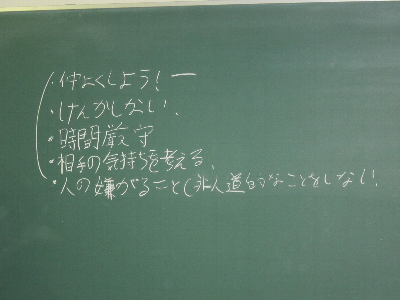 ・仲よくしよう!ー
・けんかしない、
・時間厳守
・相手の気持ちを考える、
・人の嫌がること(非人道的なことをしない!